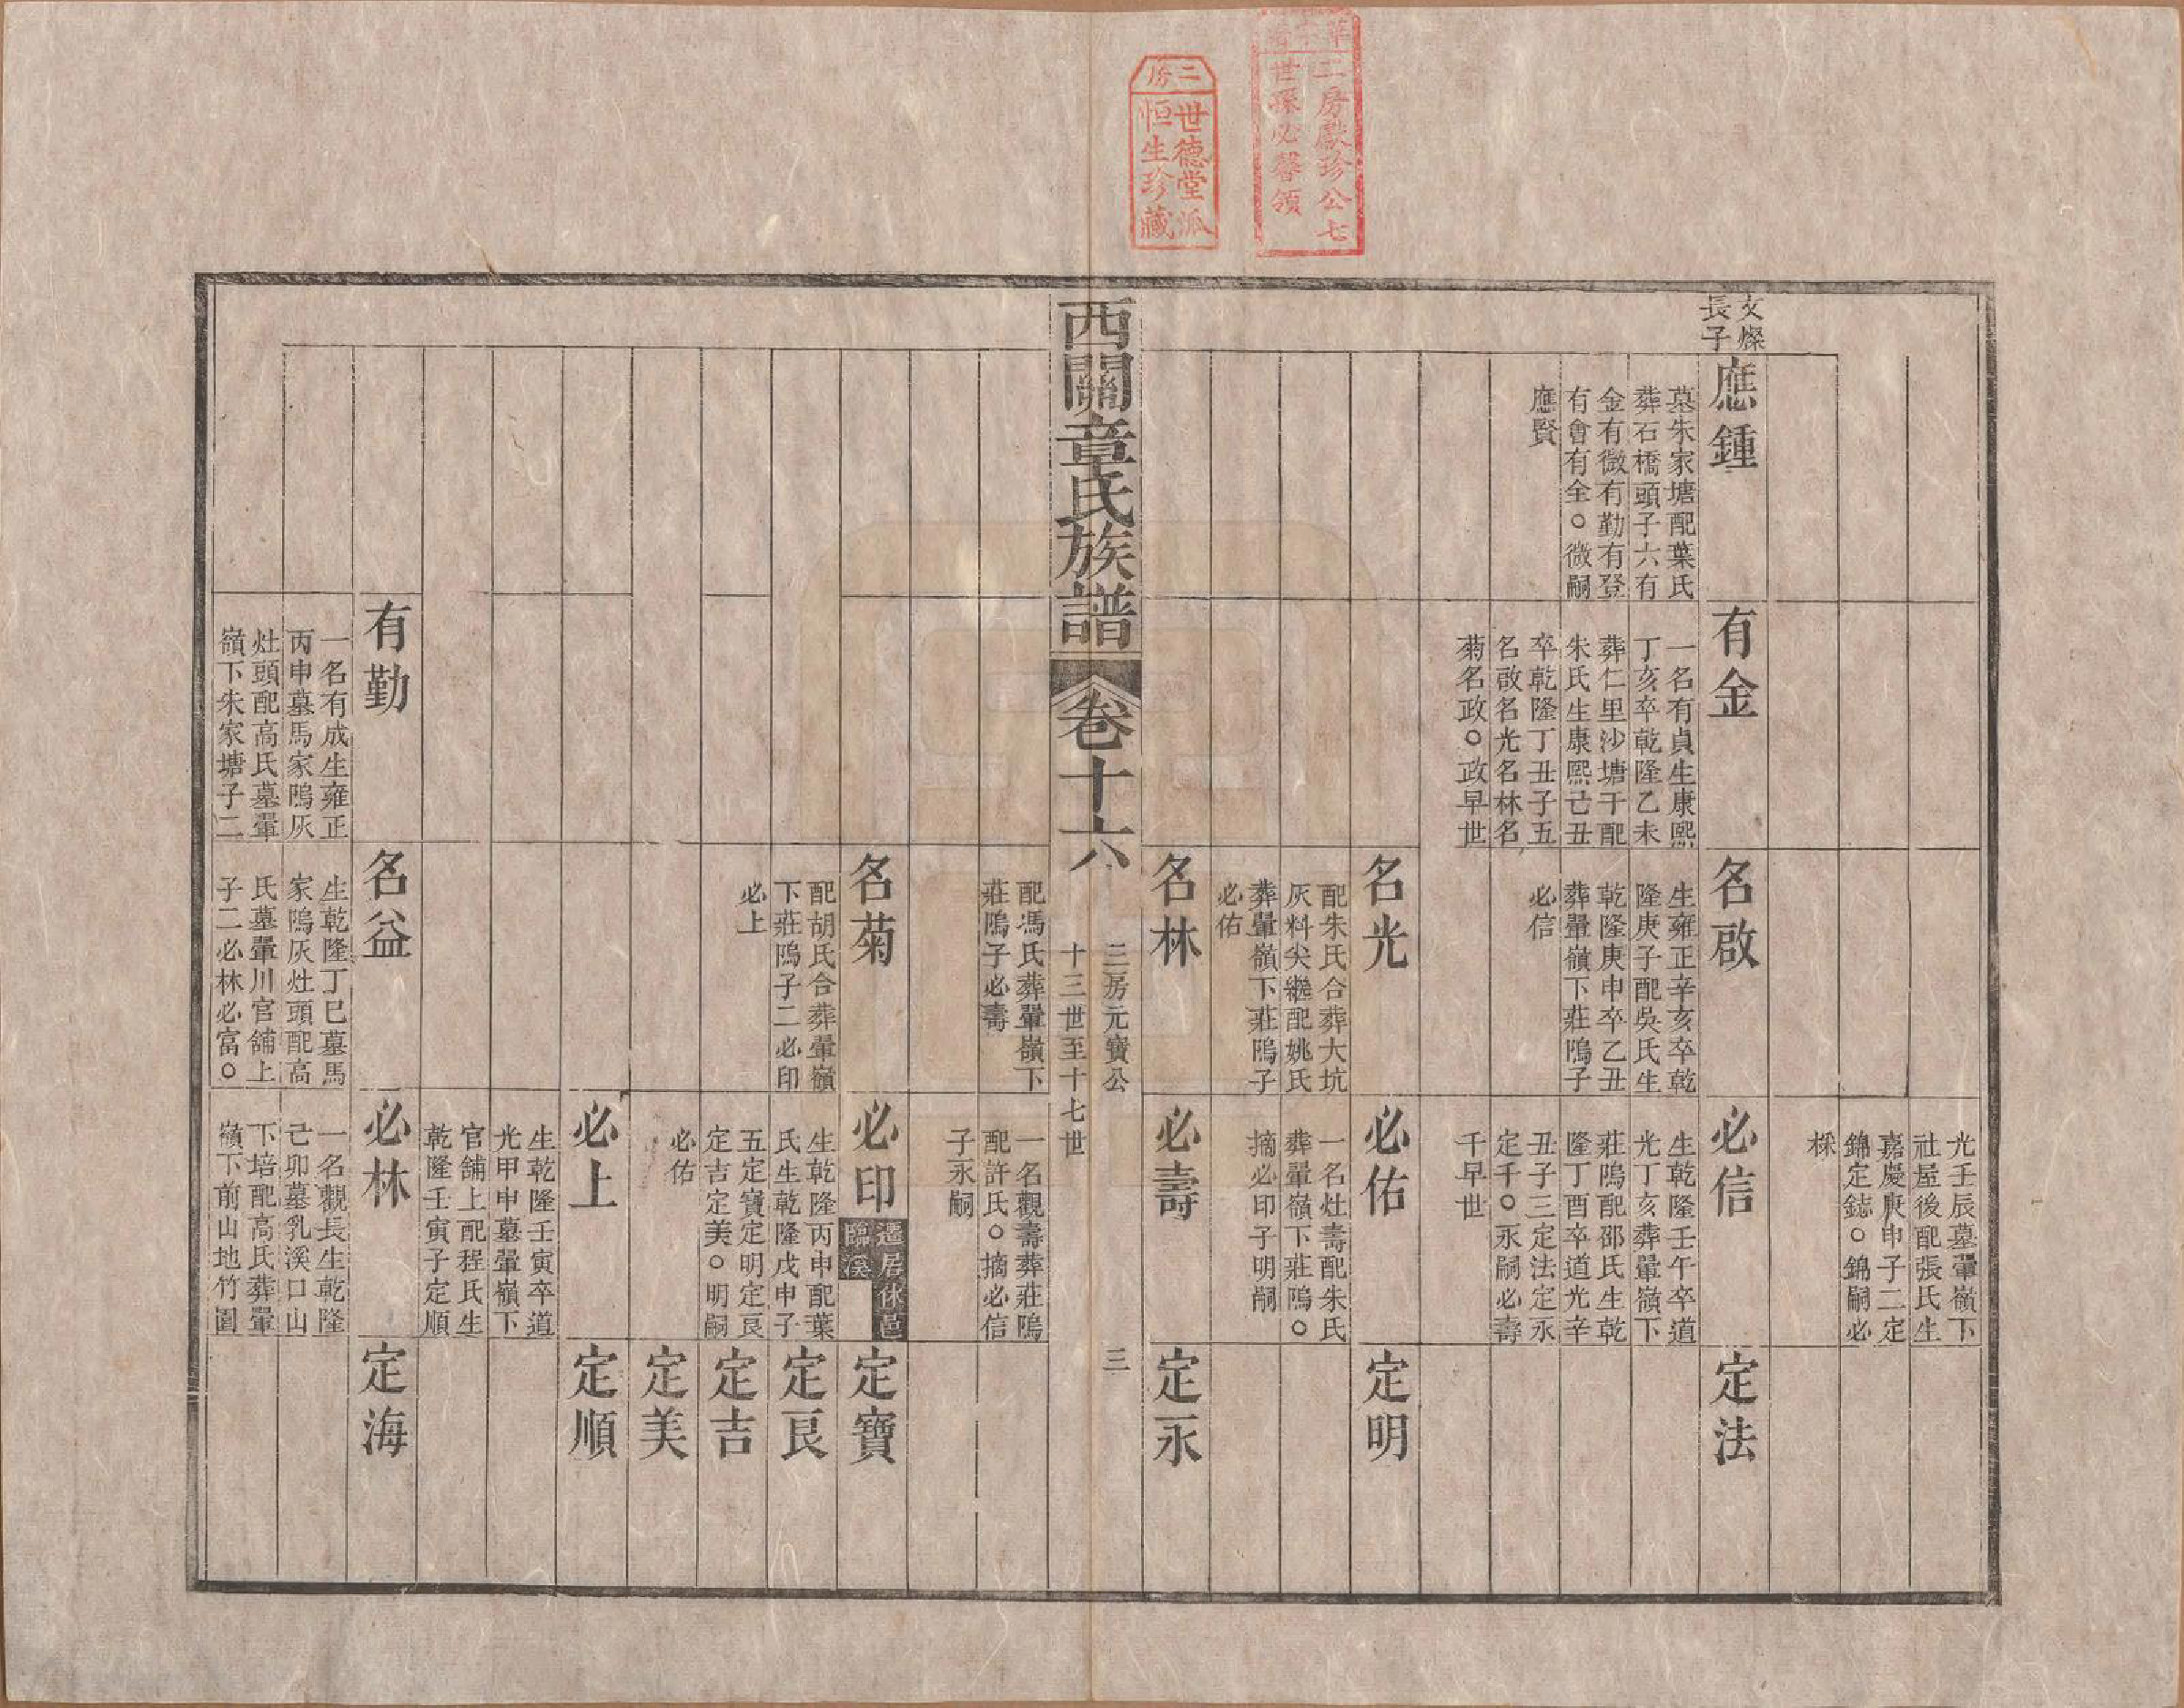 三房
世德堂派
恒生珍藏
二房獻珍公七
世孫必馨領
光壬辰墓翬嶺下
社屋後配張氏生
嘉慶庚申子二定
錦定鋕○錦嗣必
棌
文燦
長子
應鍾
墓朱家塘配葉氏
葬石橋頭子六有
金有微有勤有登
有會有全○微嗣
應賢
有金
一名有貞生康熙
丁亥卒乾隆乙未
葬仁里沙塘干配
朱氏生康熙己丑
卒乾隆丁丑子五
名啟名光名林名
菊名政○政早世
名啟
生雍正辛亥卒乾
隆庚子配吳氏生
乾隆庚申卒乙丑
葬翬嶺下莊隖子
必信
必信
生乾隆壬午卒道
光丁亥葬翬嶺下
莊隖配邵氏生乾
隆丁酉卒道光辛
丑子三定法定永
定千○永嗣必壽
千早世
定法
名光
配朱氏合葬大坑
灰料尖繼配姚氏
葬翬嶺下莊隖子
必佑
必佑
一名灶壽配朱氏
葬翬嶺下莊隖○
摘必印子明嗣
定明
名林
必壽
定永
西關章氏族譜
卷十六
三房元寶公
十三世至十七世
三
配馮氏葬翬嶺下
莊隖子必壽
一名觀壽葬莊隖
配許氏○摘必信
子永嗣
名菊
配胡氏合葬翬嶺
下莊隖子二必印
必上
必印
遷居休邑
臨溪
生乾隆丙申配葉
氏生乾隆戊申子
五定寶定明定艮
定吉定美○明嗣
必佑
定寶
定艮
定吉
定美
必上
生乾隆壬寅卒道
光甲申墓翬嶺下
官舖上配程氏生
乾隆壬寅子定順
定順
有勤
一名有成生雍正
丙申墓馬家隖灰
灶頭配高氏墓翬
嶺下朱家塘子二
名益
生乾隆丁巳墓馬
家隖灰灶頭配高
氏墓翬川官舖上
子二必林必富○
必林
一名觀長生乾隆
己卯墓乳溪口山
下培配高氏葬翬
嶺下前山地竹園
定海